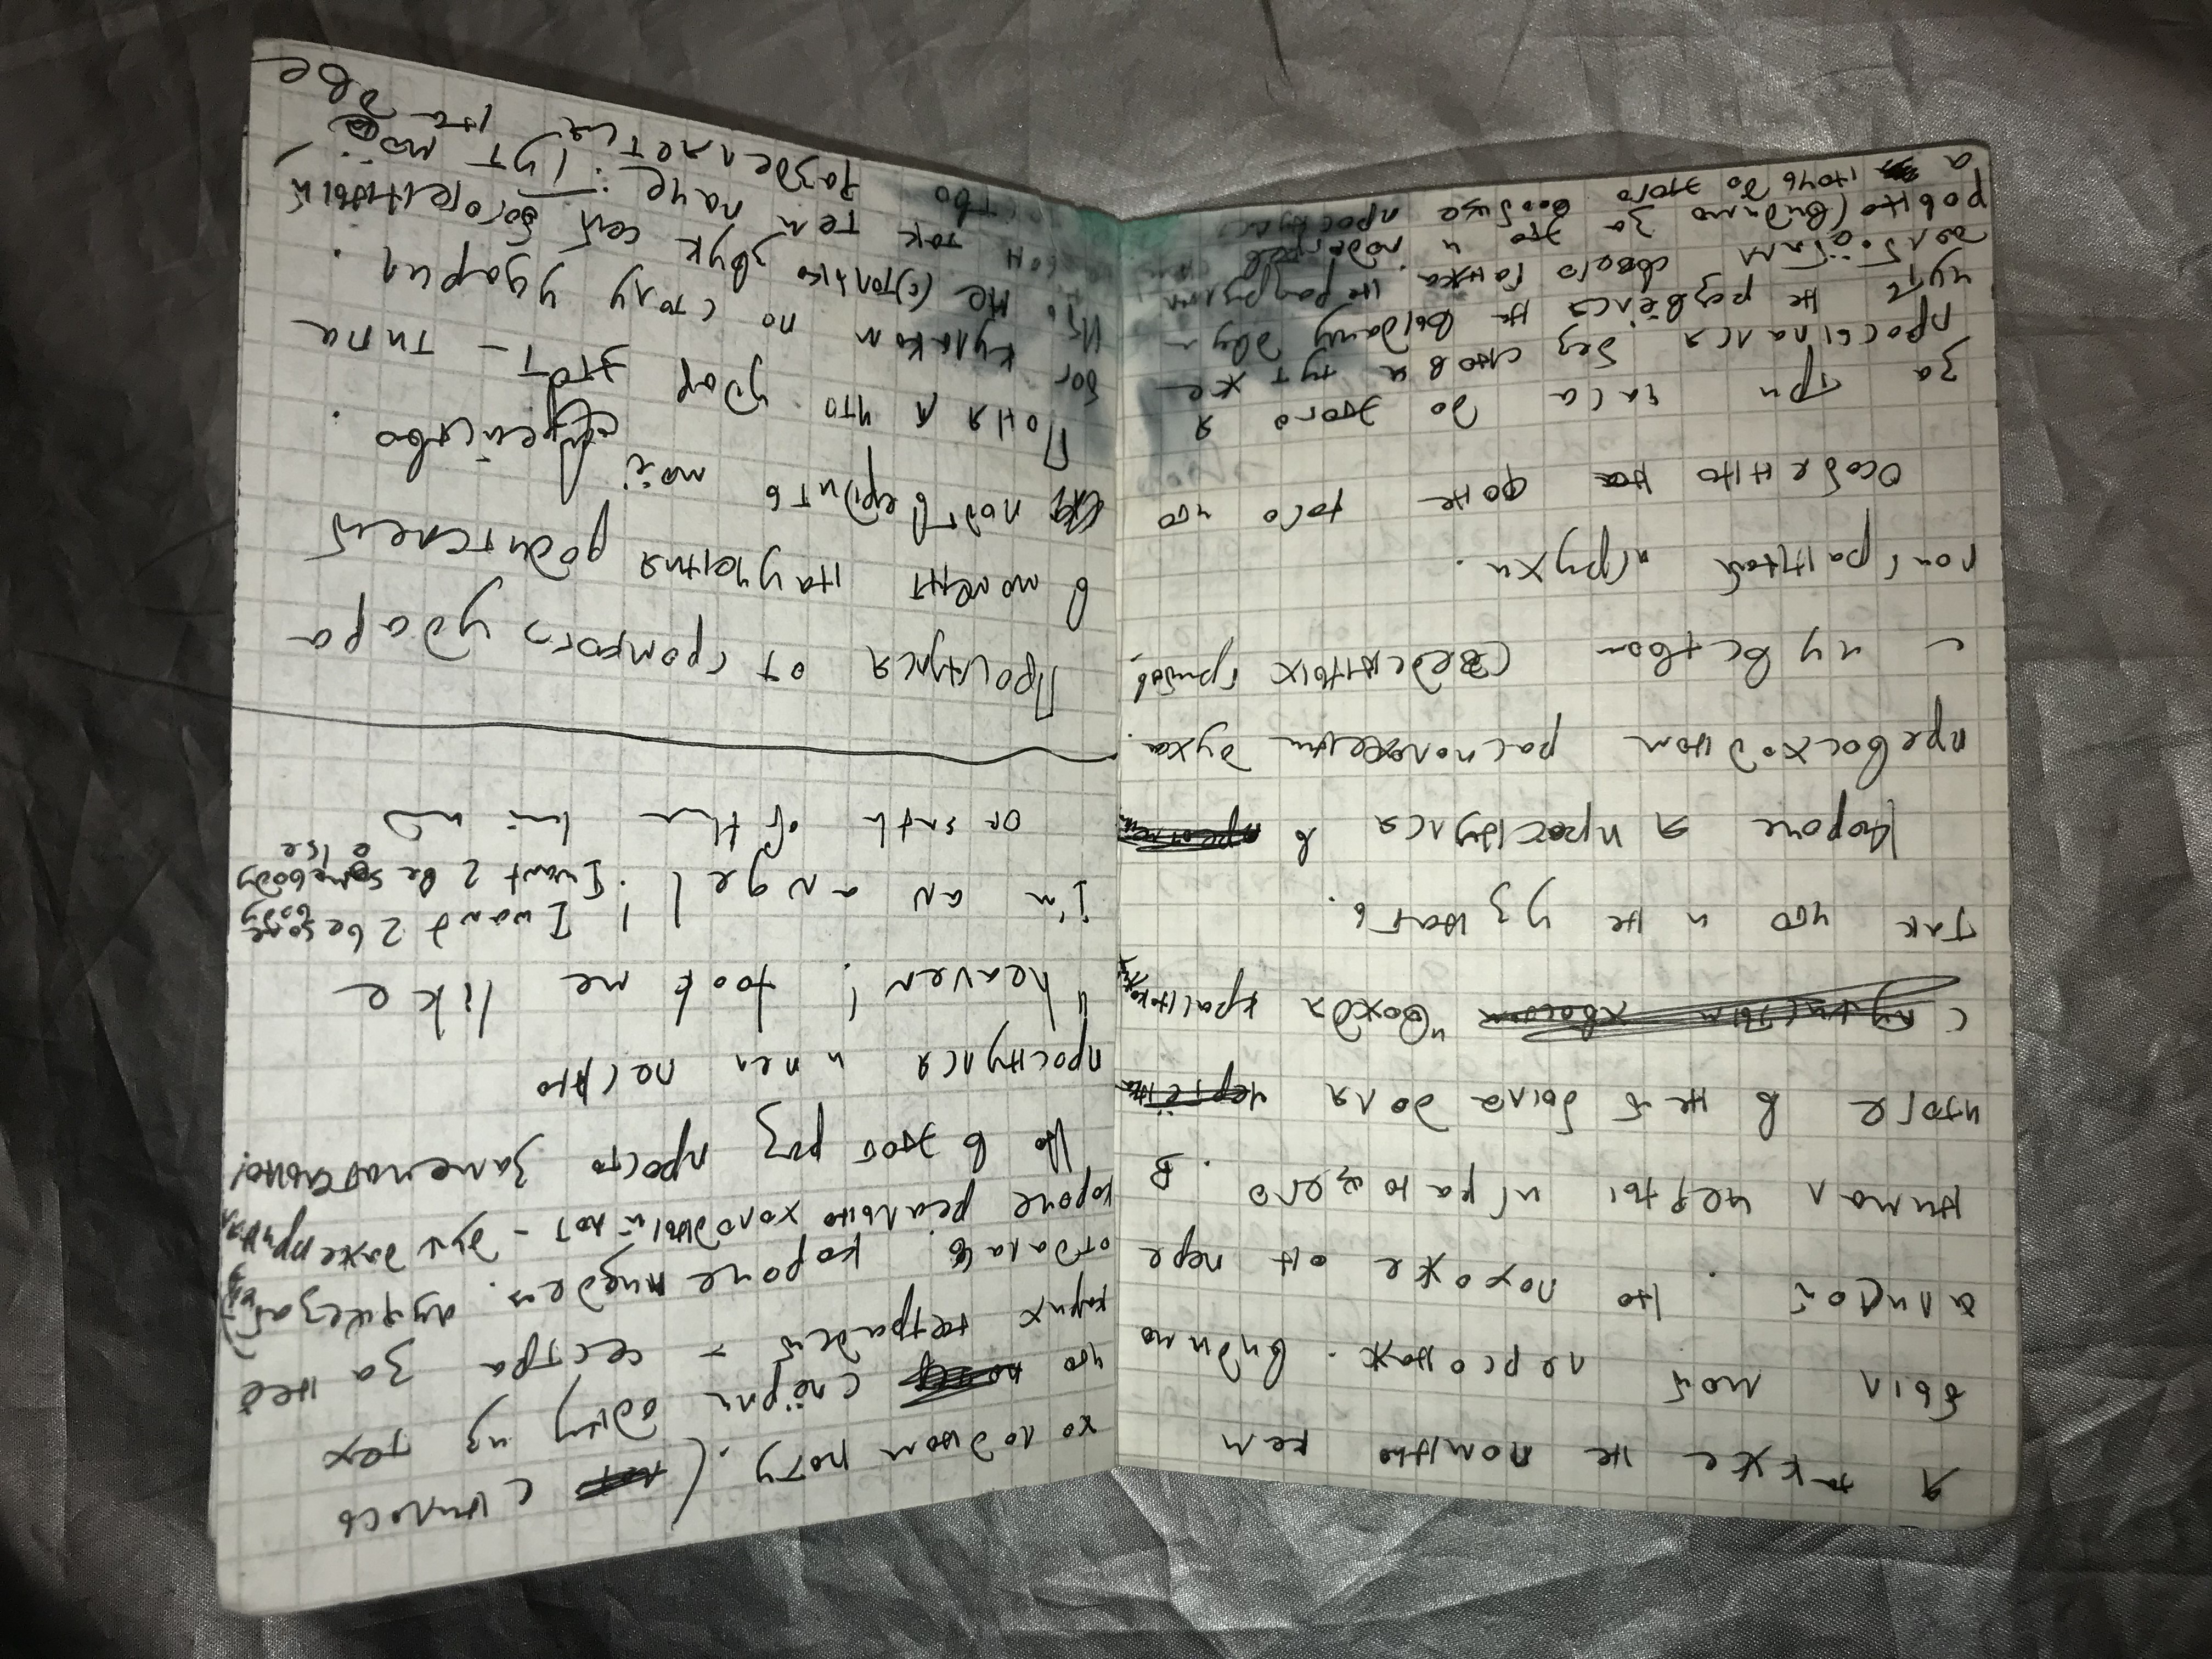 я также не помню кем
был мой персонаж. видимо
алисой. Но похоже он пере
нимал черты играющего. В
итоге в ней была доля чертёнка
с пушистым хвостом "Вождя краснокожих"
так что и не узнать.
Короче я проснулся в
превосходном расположении духа.
с чувством съеденных грибов,
поиграннтой игрухи.
Особенно на фоне того что
за три часа до этого я
просыпался без снов и тут же
чуть не развёлся на выдачу двум
долбоёбам своего ганжа.
ровно (видимо за это и подогрев
а ночь до этого вообще проснулся
холодном поту. (снилось
что спёрли одну из тех
каких тетрадей - сестра за неё
отдалась. короче пиздец.
короче реально холодный пот - душ даже принял
Но в этот раз просто замечательно!
проснулся и пел песню
"heaven! took me like
I'm an angel! I want 2 be some
body
I want 2 be somebody
else
or smth of the kind
Проснулся от громкого удара
в момент научения родителей
подтвердить моё еврейство.
Понял что удар этот - типа
бог кулаком по столу ударил.
не (с)только звук сей богогенный,
так тем паче. Тут моё
разделяется на две